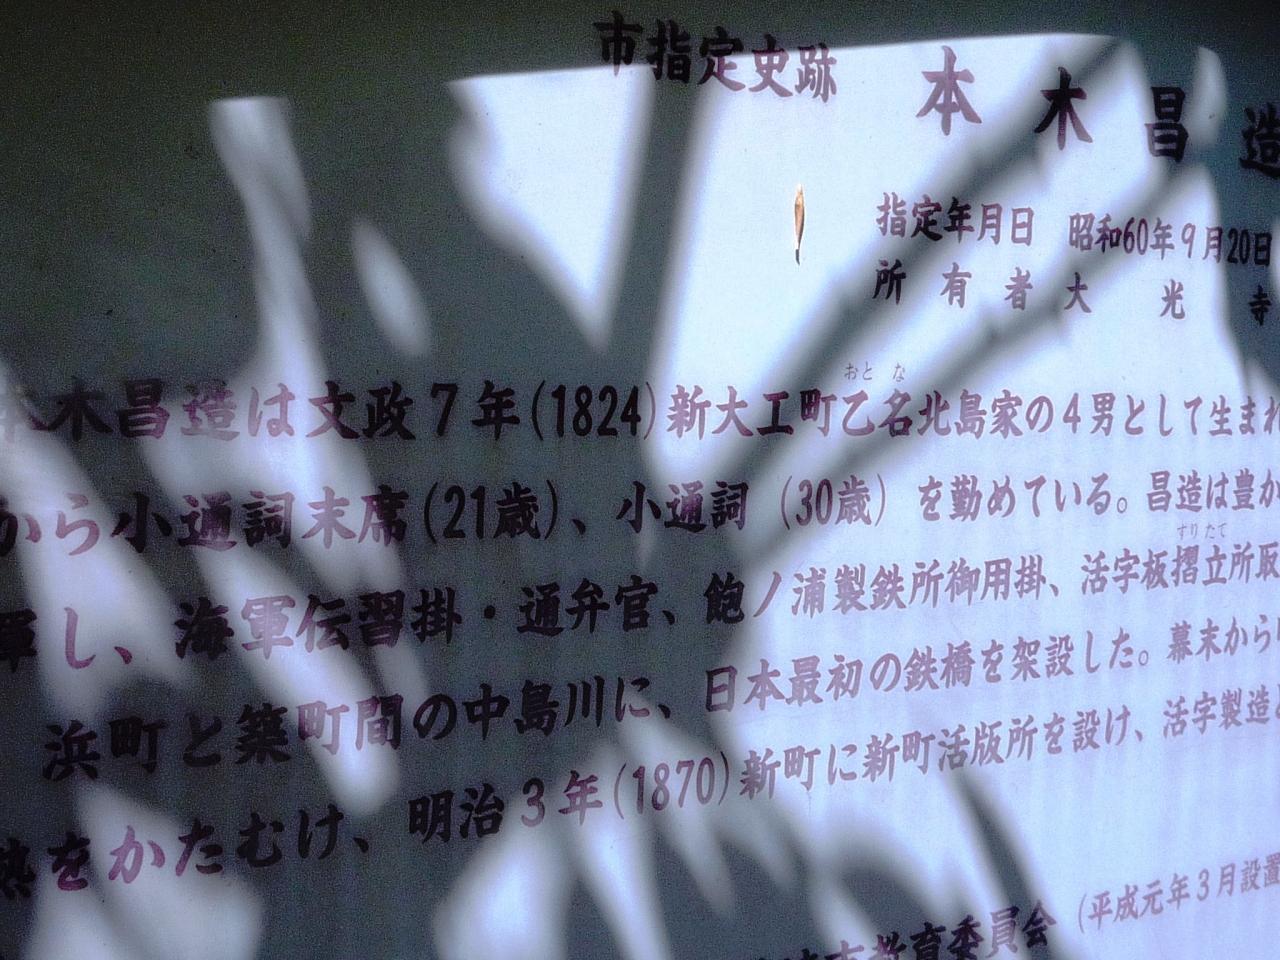 市指定史跡　本木昌造
指定年月日　昭和60年9月20日
所有者　大光寺
おと な
本木昌造は文政7年(1824)新大工町乙名北島家の4男として生まれ
から小通詞末席(21歳)、小通詞(30歳)を勤めている。昌造は豊か
すりたて
揮し、海軍伝習掛・通弁官、飽ノ浦製鉄所御用掛、活字板摺立所取
浜町と築町間の中島川に、日本最初の鉄橋を架設した。幕末から
熱をかたむけ、明治3年(1870)新町に新町活版所を設け、活字製造
市教育委員会　(平成元年3月設置